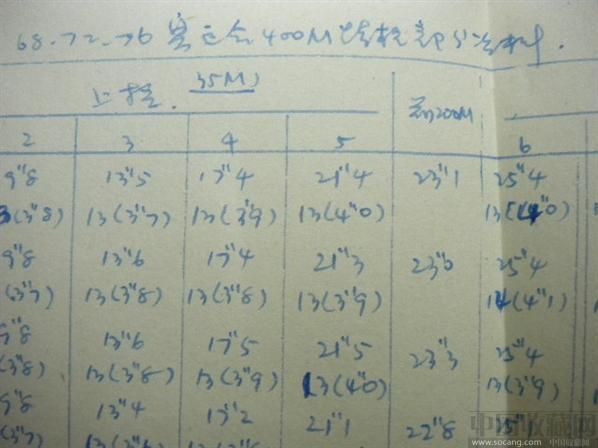 68.72.76 奥运会400M栏
上栏. 35M)
前200M
2 3 4 5 6
9"8 13"5 17"4 21"4 23"1 25"4
13(3"8) 13(3"7) 13(3"9) 13(4"0) 13(4"0)
9"8 13"6 17"4 21"3 23"0 25"4
(3"7) 13(3"8) 13(3"8) 13(3"9) 14(4"1)
9"8 13"6 17"5 21"5 23"3 25"4
(3"8) 13(3"8) 13(3"9) 13(4"0) 13(3"9)
9"8 13"4 17"2 21"1 22"8 25"1
(3"7)
中国收藏网
www.socang.com 中国收藏网